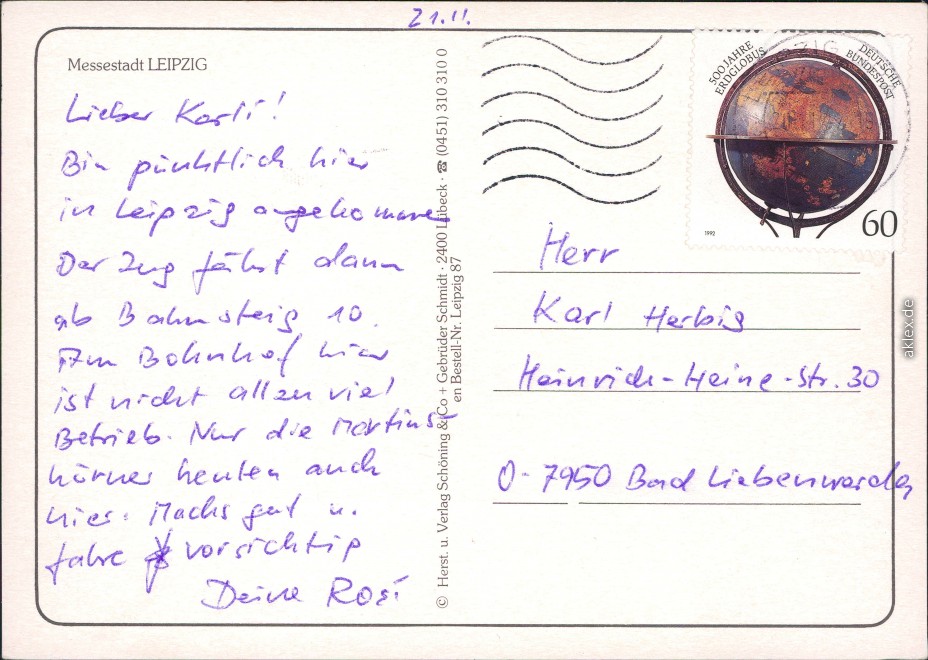 21.11.
Messestadt LEIPZIG
Lieber Karli!
Bin pünktlich hier
in Leipzig angekommen
Der Zug fährt dann
ab Bahnsteig 10.
Am Bahnhof hier
ist nicht allzu viel
Betrieb. Nur die Martins-
hörner heulen auch
hier. Machs gut u.
fahre vorsichtig
Deine Rosi
© Herst. u. Verlag Schöning & Co + Gebrüder Schmidt · 2400 Lübeck · ☎ (0451) 310 310 0
en Bestell-Nr. Leipzig 87
500 JAHRE
ERDGLOBUS
DEUTSCHE
BUNDESPOST
1992
60
Herr
Karl Herbig
Heinrich-Heine-Str. 30
O-7950 Bad Liebenwerda
aklex.de